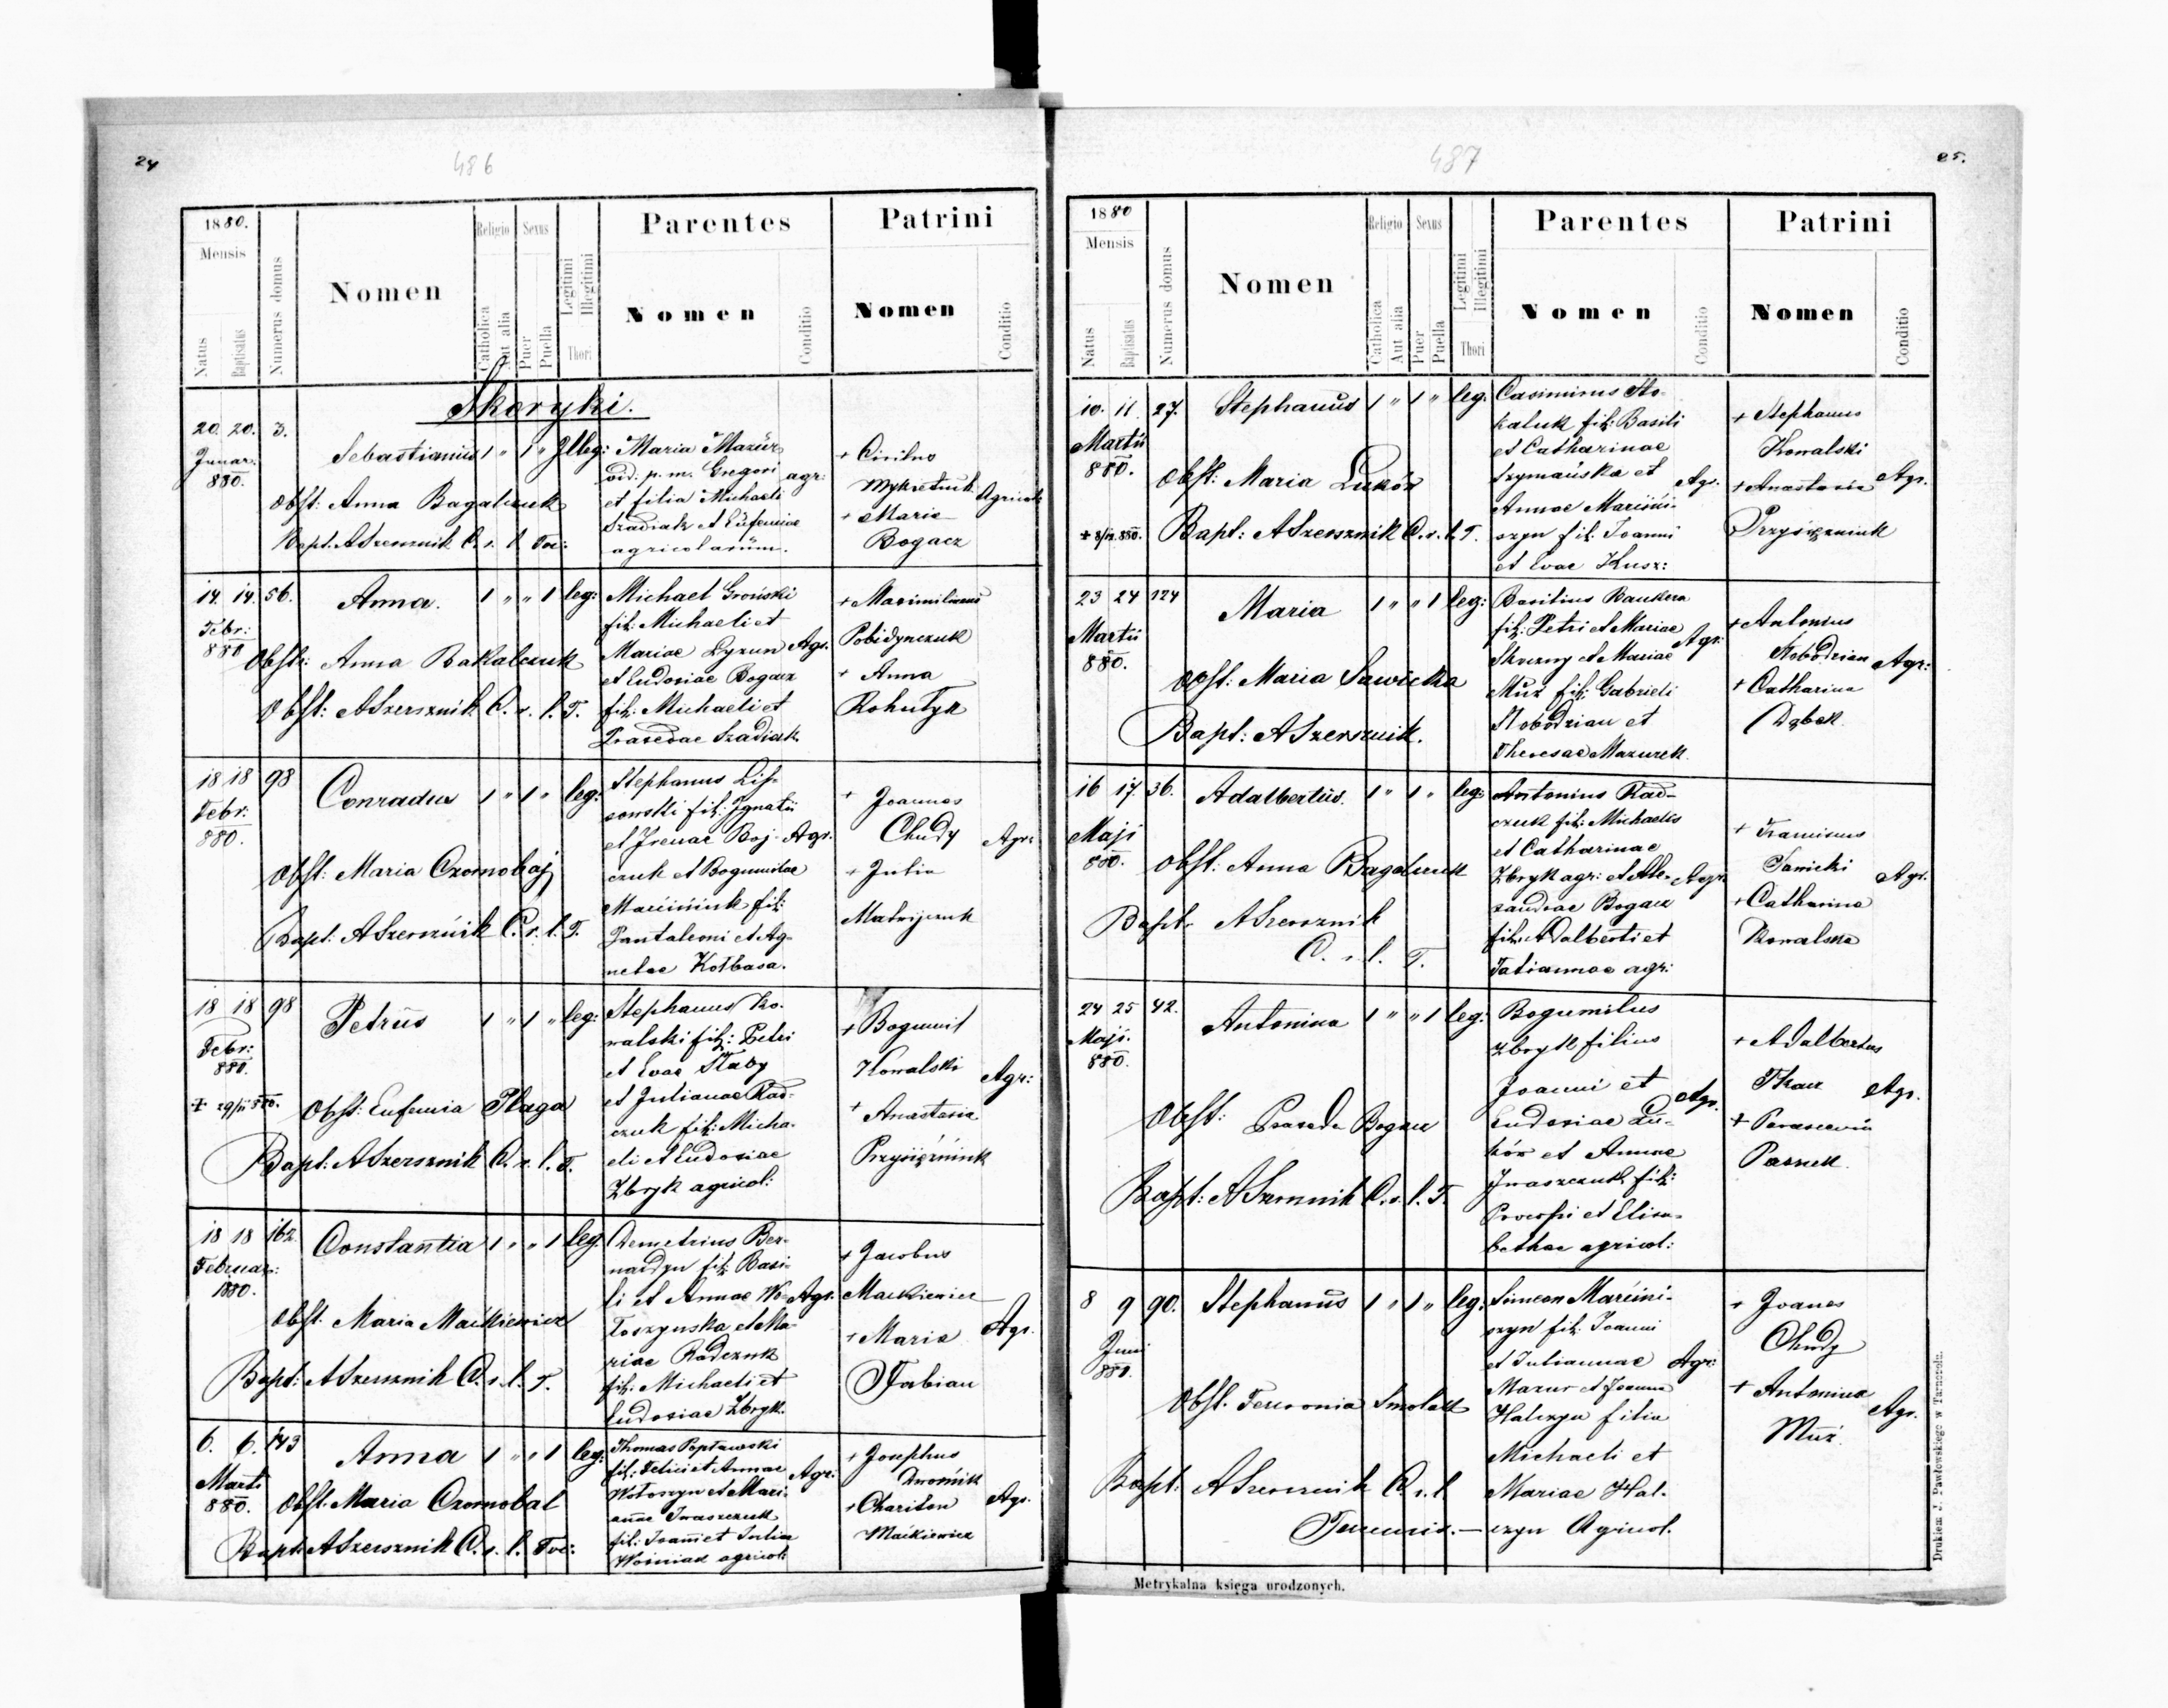 24
486
1880.
Mensis
Natus
Baptisatus
Numerus domus
Nomen
Religio
Catholica
Aut alia
Sexus
Puer
Puella
Legitimi
Illegitimi
Thori
Parentes
Nomen
Conditio
Patrini
Nomen
Conditio
Skoryki.
20. 20. 3.
Januar.
880.
Sebastianus 1 " 1 " Illeg:
Obst: Anna Bagalczuk
Bapt. ASzersznik C. s. l. Toc:
Maria Mazur
vid: p. m. Gregori agr:
et filia Michaeli
Szadiak et Eufemiae
agricolarum.
+ Cirilus
Mykietiuk Agricol:
+ Maria
Bogacz
14. 14. 56.
Febr:
880
Anna. 1 " " 1 leg:
Obst: Anna Bakalczuk
Obst: ASzersznik C. s. l. T.
Michael Groński
fil: Michaeli et
Mariae Łyzun Agr.
et Eudosiae Bogacz
fil: Michaeli et
Praxedae Szadiak
+ Maximilianus
Pobidynczuk
+ Anna
Rohatyn
18 18 98
Febr:
880.
Conradus 1 " 1 " leg:
Obst: Maria Czornobaj
Bapt: ASzersznik C. s. l. T.
Stephanus Lis-
sowski fil: Ignatii
et Irenae Boj- Agr.
czuk et Bogumilae
Marciniuk fil:
Pantaleoni et Ag-
netae Kołbasa.
+ Joannes
Chudy Agr:
+ Julia
Matwijczuk
18 18 98
Febr:
880.
+ 29/II 880.
Petrus 1 " 1 " leg:
Obst: Eufemia Płaga
Bapt: ASzersznik C. s. l. T.
Stephanus Ko-
walski fil: Petri
et Evae Słaby
et Julianae Rad-
czuk fil: Micha-
eli et Eudosiae
Zbryk agricol:
+ Bogumil
Kowalski Agr:
+ Anastasia
Przysiężniuk
18 18 162.
Februar:
1880.
Constantia 1 " " 1 leg.
Obst. Maria Maćkiewicz
Bapt: ASzersznik C. s. l. T.
Demetrius Ber-
nardyn fil: Basi-
li et Annae Wo- Agr.
łoszynska et Ma-
riae Radczuk
fil: Michaeli et
Eudosiae Zbryk.
+ Jacobus
Mackiewicz
+ Maria Agr.
Fabian
6. 6. 143
Marti
880.
Anna 1 " " 1 leg:
Obst. Maria Czornobal
Bapt: ASzersznik C. s. l. Toc:
Thomas Popławski
fil: Felici et Annae Agr:
Wołoszyn et Mari-
annae Iwaszczuk
fil: Joanni et Julia
Woiniak agricol:
+ Josephus
Dwornik
+ Chariton Agr.
Maćkiewicz
487
25.
1880
Mensis
Natus
Baptisatus
Numerus domus
Nomen
Religio
Catholica
Aut alia
Sexus
Puer
Puella
Legitimi
Illegitimi
Thori
Parentes
Nomen
Conditio
Patrini
Nomen
Conditio
10. 11. 27.
Martii
880.
Stephanus 1 " 1 " leg:
Obst: Maria Luków
Bapt: ASzersznik C. s. l. T.
Casimirus Sto-
kaluk fil: Basili
et Catharinae
Szymańska et Agr.
Annae Marcini-
szyn fil: Joanni
et Evae Kusz:
+ Stephanus
Kowalski
+ Anastasia Agr.
Przysiężniuk
23 24 124
Martii
880.
Maria 1 " " 1 leg:
Obst: Maria Sawicka
Bapt: ASzersznik.
Basilius Baukera
fil: Petri et Mariae
Skoczny et Mariae Agr:
Muz fil: Gabrieli
Słobodzian et
Theresae Mazurek.
+ Antonius
Słobodzian Agr:
+ Catharina
Dąbek.
16 17. 36.
Maji
880.
Adalbertus. 1 " 1 " leg:
Obst: Anna Bagalczuk
Bapt. ASzersznik
C. s. l. T.
Antonius Rad-
czuk fil: Michaelis
et Catharinae
Zbryk agr: et Ale- Agr.
xandrae Bogacz
fil: Adalberti et
Tatiannae agr:
+ Franciscus
Sawicki Agr.
+ Catharina
Kowalska
24 25 42.
Maji.
880.
Antonina 1 " " 1 leg:
Obst: Praxeda Bogacz
Bapt: ASzersznik C. s. l. T.
Bogumilus
Zbryk filius
Joanni et Agr.
Eudosiae Lu-
ków et Annae
Iwaszczuk fil:
Procopi et Elisa-
bethae agricol:
+ Adalbertus
Tkacz Agr.
+ Parascevia
Pasnek.
8 9 90.
Juni
880.
Stephanus 1 " 1 " leg:
Obst. Fewronia Smolak
Bapt. ASzersznik C. s. l.
Simeon Marcini-
szyn fil: Joanni
et Juliannae Agr:
Mazur et Joanna
Halczyn filia
Michaeli et
Mariae Hal-
czyn Agricol.
+ Joanes
Chudy
+ Antonina Agr.
Muz.
Metrykalna księga urodzonych.
Drukiem J. Pawłowskiego w Tarnopolu.